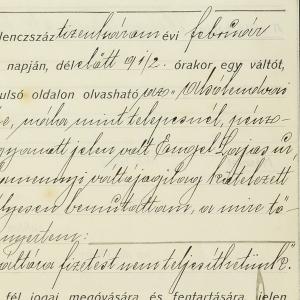 lenczszáz tizenhárom évi február
napján, délelőtt 9 1/2 órakor, egy váltót,
ulsó oldalon olvasható az "Alsólendvai
mint telepesnél, pénz-
ugyanott jelen volt Engel Lajos úr
váltójogilag kötelezett
lyesen bemutattam, a mire tő-
nyertem:
váltóra fizetést nem teljesíthetünk".
fél jogai megóvására és fentartására jelen